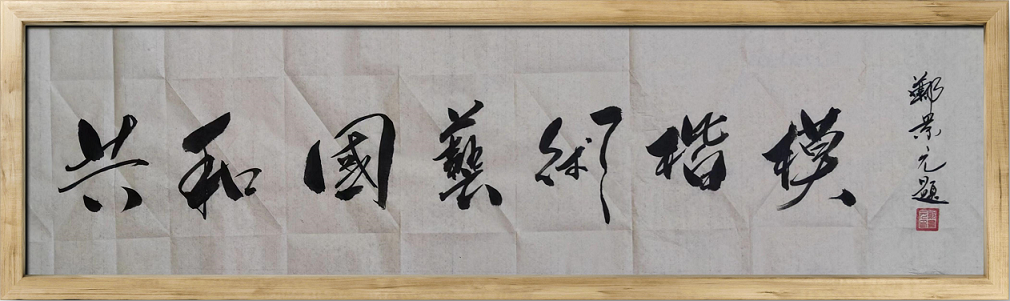 共和國藝術楷模
鄭景元題